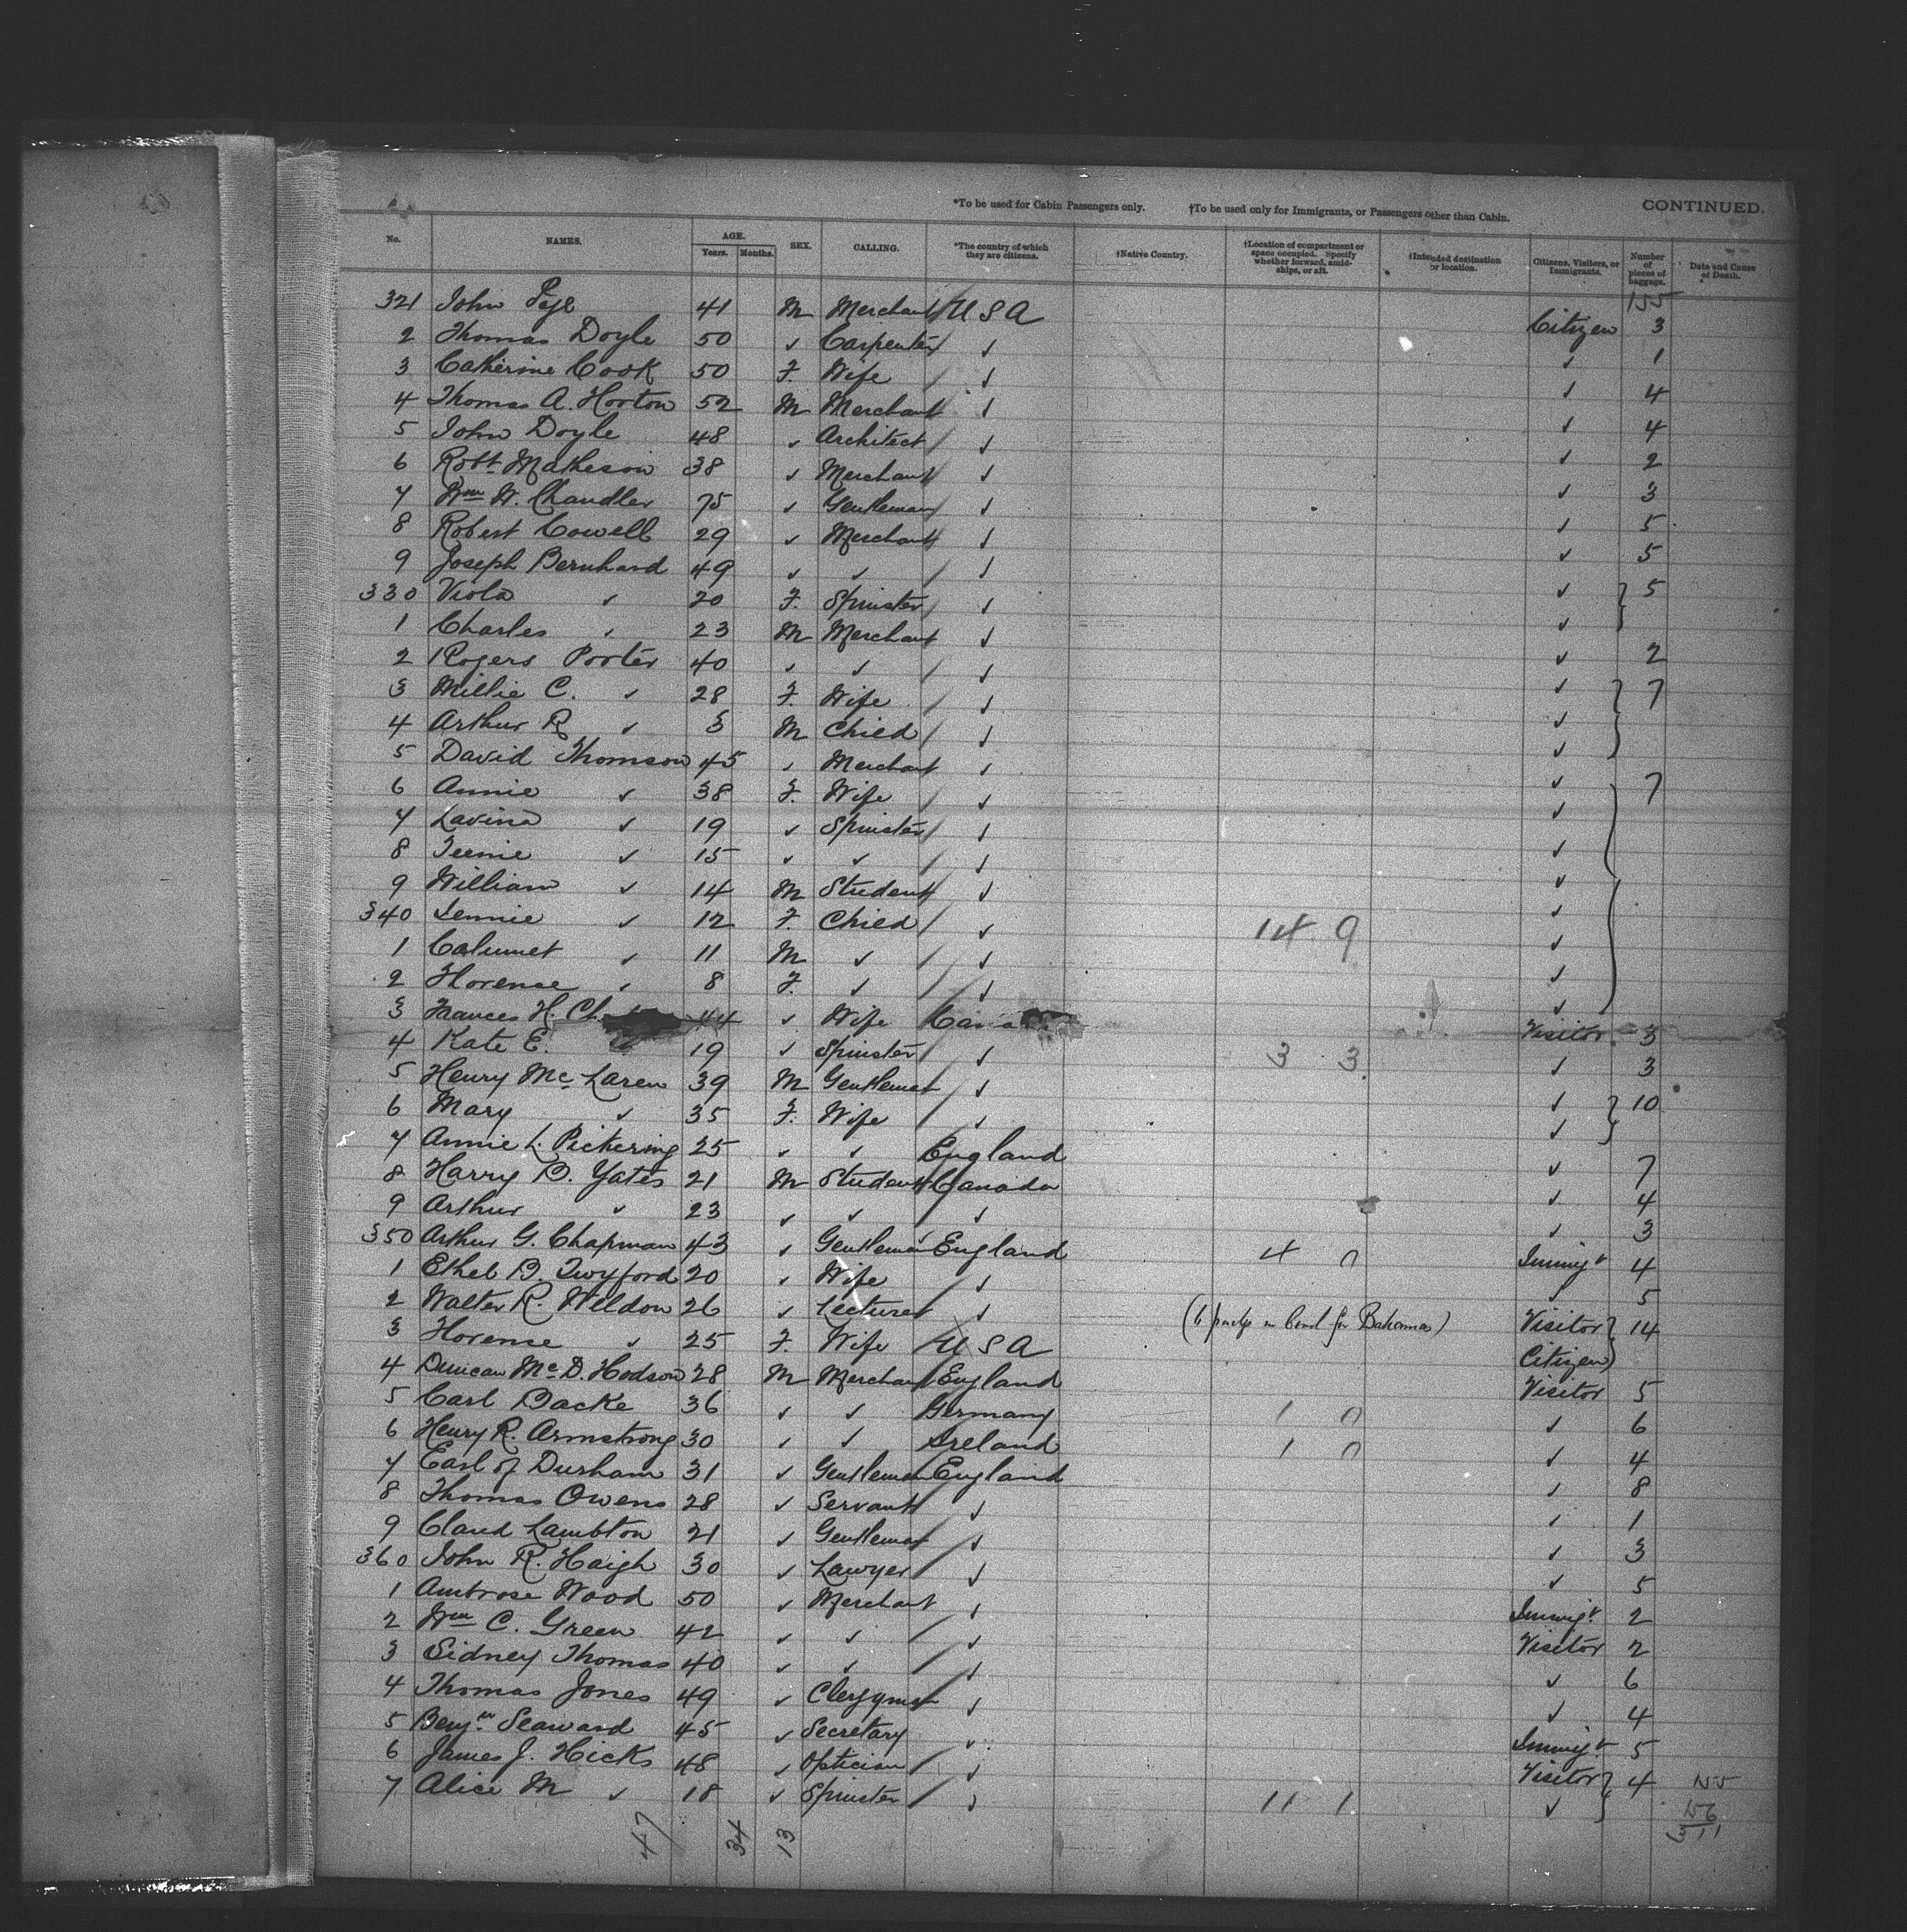 *To be used for Cabin Passengers only. †To be used only for Immigrants, or Passengers other than Cabin. CONTINUED.
No. NAMES. AGE. Years. Months. SEX. CALLING. *The country of which they are citizens. †Native Country. †Location of compartment or space occupied. Specify whether forward, amidships, or aft. †Intended destination or location. Citizens, Visitors, or Immigrants. Number of pieces of baggage. Date and Cause of Death.
155
321 John 41 M Merchant U S A Citizen 3
2 Thomas Doyle 50 ✓ Carpenter ✓ ✓ 1
3 Catherine Cook 50 F. Wife ✓ ✓ 4
4 Thomas A. Horton 52 M Merchant ✓ ✓ 4
5 John Doyle 48 ✓ Architect ✓ ✓ 2
6 Robt. Matheson 38 ✓ Merchant ✓ ✓ 3
7 Wm W. Chandler 75 ✓ Gentleman ✓ ✓ 5
8 Robert Cowell 29 ✓ Merchant ✓ ✓ 5
9 Joseph Bernhard 49 ✓ ✓ ✓ ✓ 5
330 Viola ✓ 20 F. Spinster ✓ ✓
1 Charles ✓ 23 M Merchant ✓ ✓ 2
2 Rogers Porter 40 ✓ ✓ ✓ ✓ 7
3 Millie C. ✓ 28 F. Wife ✓ ✓
4 Arthur R ✓ 3 M Child ✓ ✓
5 David Thomson 45 ✓ Merchant ✓ ✓ 7
6 Annie ✓ 38 F. Wife ✓ ✓
7 Lavina ✓ 19 ✓ Spinster ✓ ✓
8 Teenie ✓ 15 ✓ ✓ ✓ ✓
9 William ✓ 14 M Student ✓ ✓
340 Jennie ✓ 12 F. Child ✓ 14 9 ✓
1 Calumet ✓ 11 M ✓ ✓ ✓
2 Florence ✓ 8 F. ✓ ✓ ✓
3 Frances H. 44 ✓ Wife Visitor 3
4 Kate E. 19 ✓ Spinster ✓ 3 3 ✓ 3
5 Henry Mc Laren 39 M Gentleman ✓ ✓ 10
6 Mary ✓ 35 F. Wife ✓ ✓
7 Annie L. Pickering 25 ✓ ✓ England ✓ 7
8 Harry B. Yates 21 M Student Canada ✓ 4
9 Arthur ✓ 23 ✓ ✓ ✓ ✓ 3
350 Arthur G. Chapman 43 ✓ Gentleman England 4 0 Immigt 4
1 Ethel B. Twyford 20 ✓ Wife ✓ ✓ 5
2 Walter R. Weldon 26 ✓ Lecturer ✓ (6 in bond for Bahamas) Visitor 14
3 Florence ✓ 25 F. Wife U S A Citizen
4 Duncan Mc D. Hodson 28 M Merchant England Visitor 5
5 Carl Backe 36 ✓ ✓ Germany 1 0 ✓ 6
6 Henry R. Armstrong 30 ✓ ✓ Ireland 1 0 ✓ 4
7 Earl of Durham 31 ✓ Gentleman England ✓ 8
8 Thomas Owens 28 ✓ Servant ✓ ✓ 1
9 Claud Lambton 21 ✓ Gentleman ✓ ✓ 3
360 John R. Haigh 30 ✓ Lawyer ✓ ✓ 5
1 Ambrose Wood 50 ✓ Merchant ✓ Immigt. 2
2 Wm C. Green 42 ✓ ✓ ✓ Visitor 2
3 Sidney Thomas 40 ✓ ✓ ✓ ✓ 6
4 Thomas Jones 49 ✓ Clergyman ✓ ✓ 4
5 Benjn. Seaward 45 ✓ Secretary ✓ Immigt 5
6 James J. Hicks 48 ✓ Optician ✓ Visitor 4
7 Alice M ✓ 18 ✓ Spinster ✓ 11 1 ✓
155
156
311
47 34 13